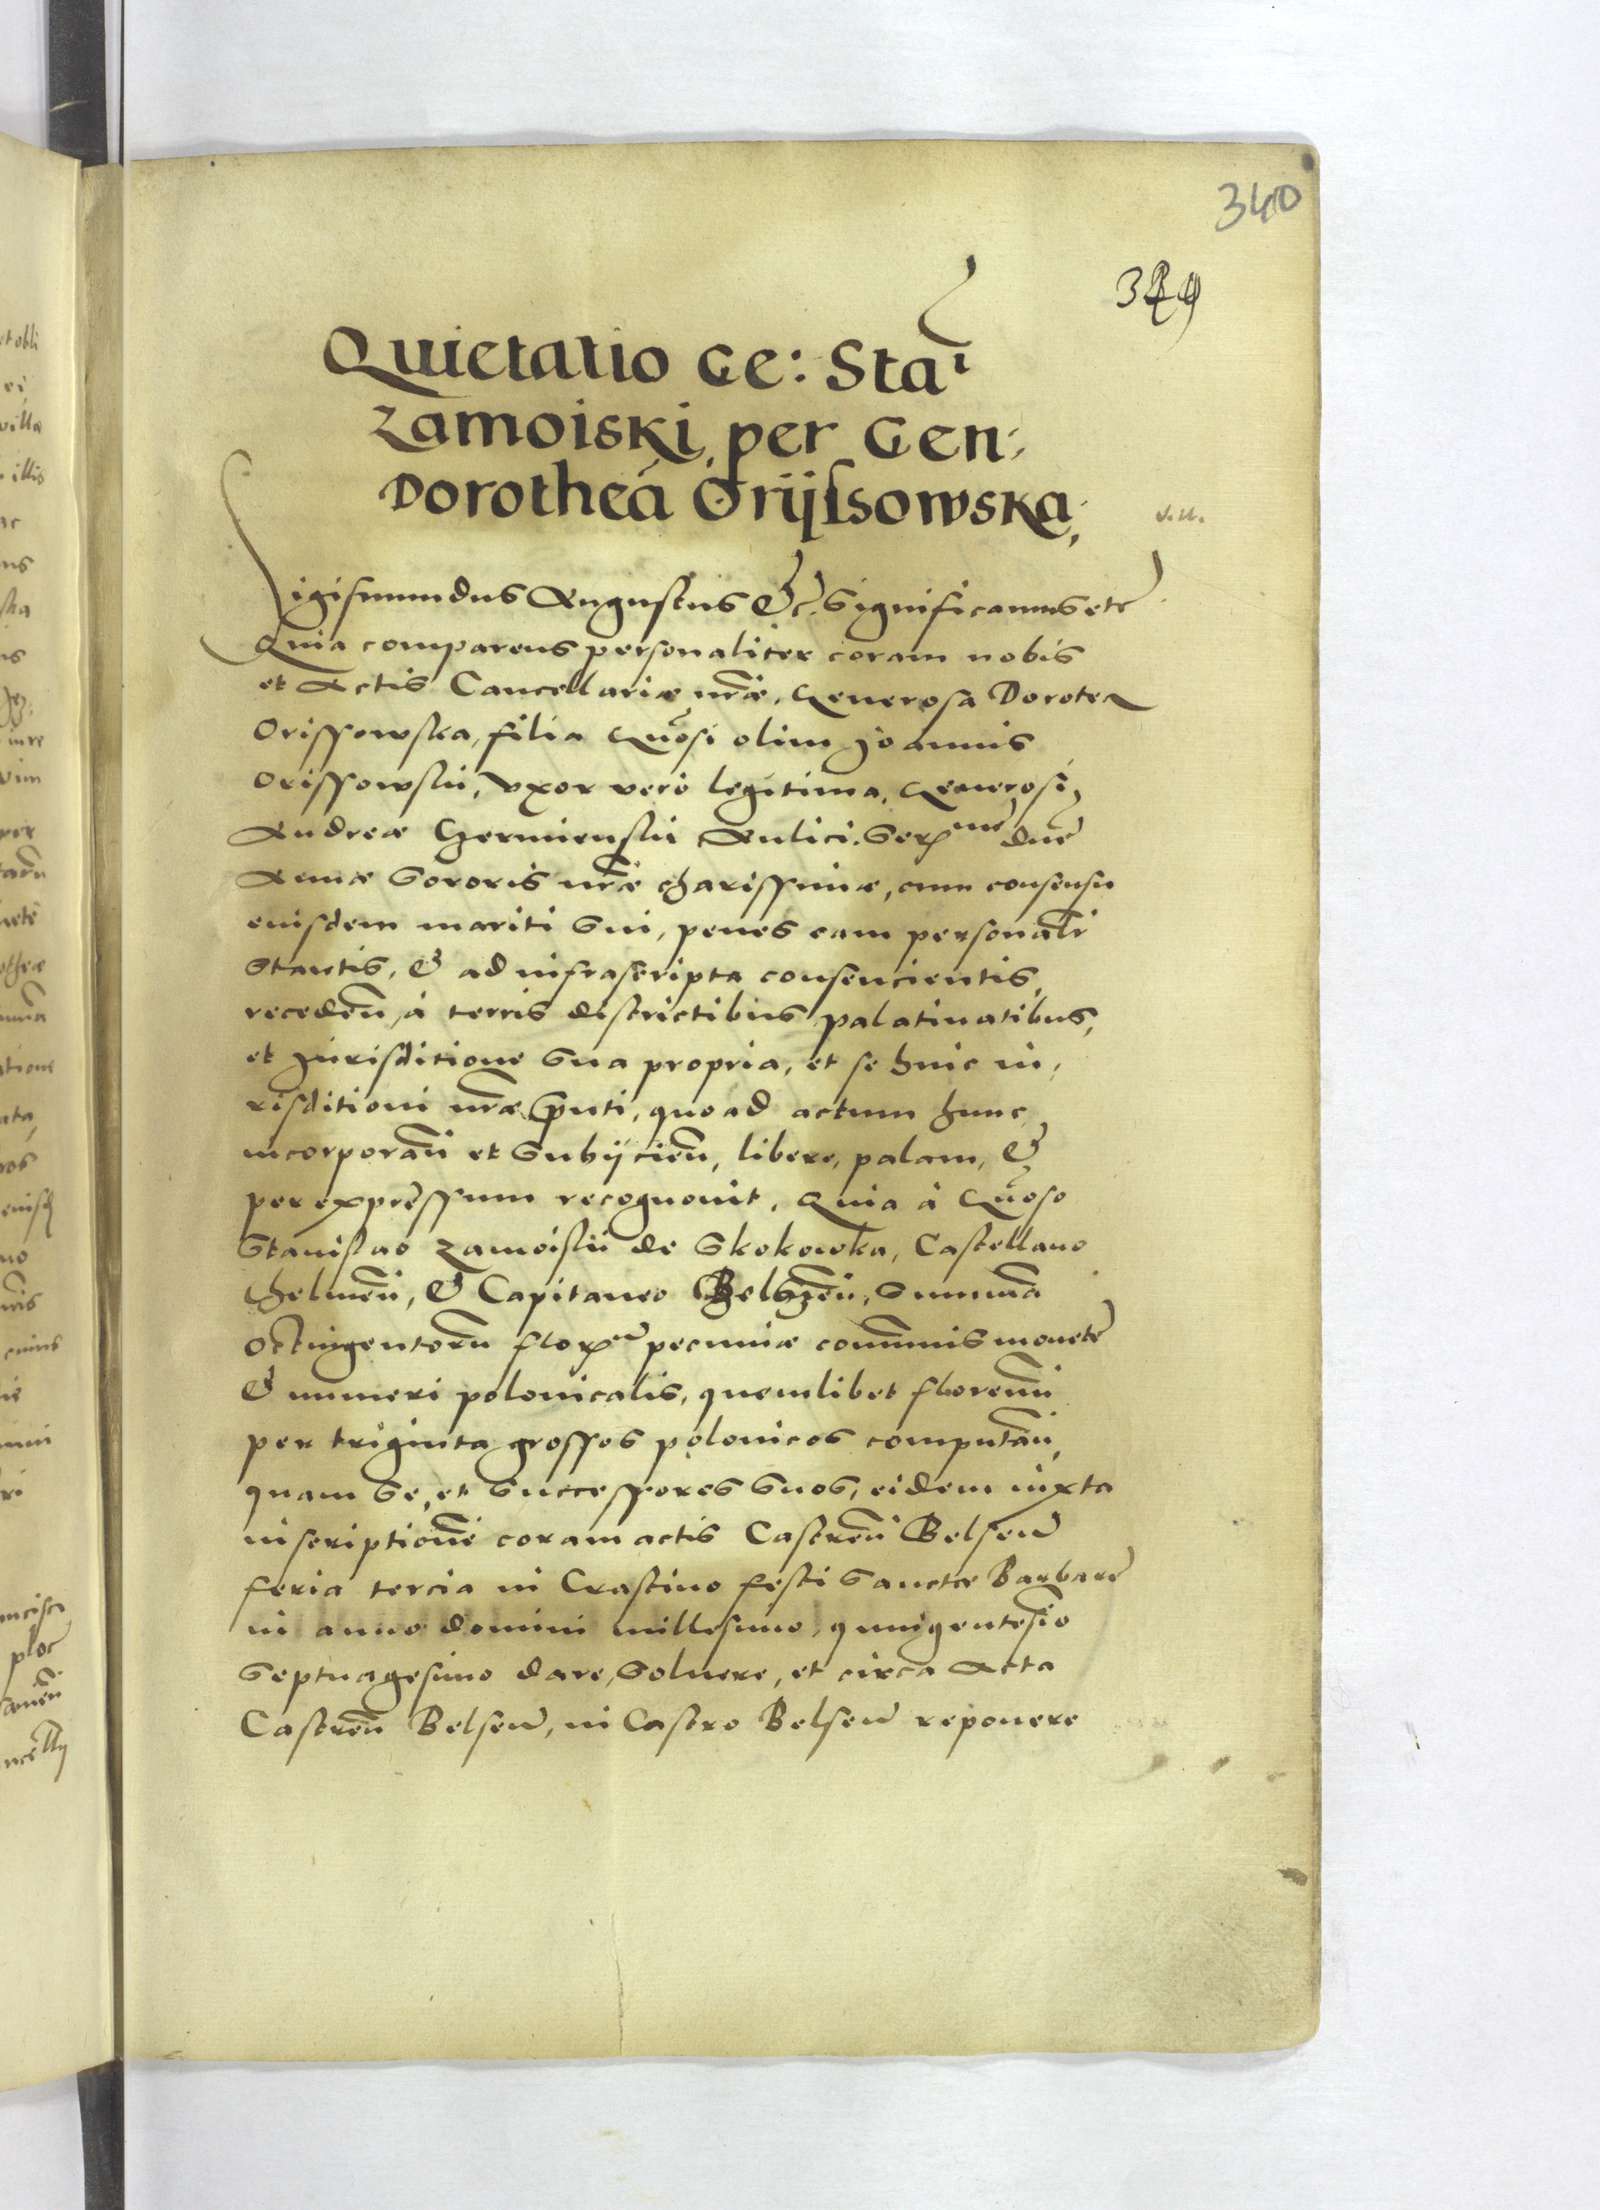 340
349
Quietatio Ge: Sta
Zamoiski per Gen:
Dorotheã Orijssowska,
Sigismundus Augustus &c. Significamus etc
Quia comparens personaliter coram nobis
et Actis Cancellariæ nr̃æ, Generosa Dorotea
Orissowska, filia Gn̄osi olim Joannis
Orissowskii, uxor vero legitima, Generosi
Andreæ Czermienskii Aulici. Ser. me dn̄e
Annæ Sororis nr̃æ charissimæ, cum consensu
eiusdem mariti sui, penes eam personal̃r
stantis, & ad infrascripta consencientis,
receden̄, à terris districtibus palatinatibus,
et Jurisditione sua propria, et se huic iu,
risditioni nr̃æ p̄nti, quo ad actum hunc,
incorporan̄ et subijcien̄, libere, palam, &
per expressum recognovit, Quia à Gn̄oso
Stanislao Zamoiskii de Skokowka, Castellano
Chelmen̄, & Capitaneo Belzen̄, Summã
octingentorũ flor. pecuniæ com̄unis monete
& numeri polonicalis, quemlibet florenũ
per triginta grossos polonicos computan̄,
quam se, et successores suos, eidem iuxta
inscriptionẽ coram actis Castren̄ Belsen̄
feria tercia in Crastino festi Sanctæ Barbare
in anno domini millesimo, quingentesĩo
Septuagesimo dare, Solvere, et circa Acta
Castren̄ Belsen̄, in Castro Belsen̄ reponere